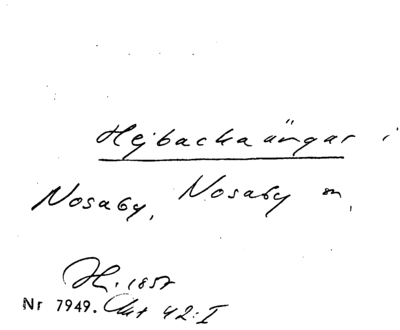 Hejbackaängar i
Nosaby, Nosaby sn,
H. 1857
Nr 7949. Akt 42:I